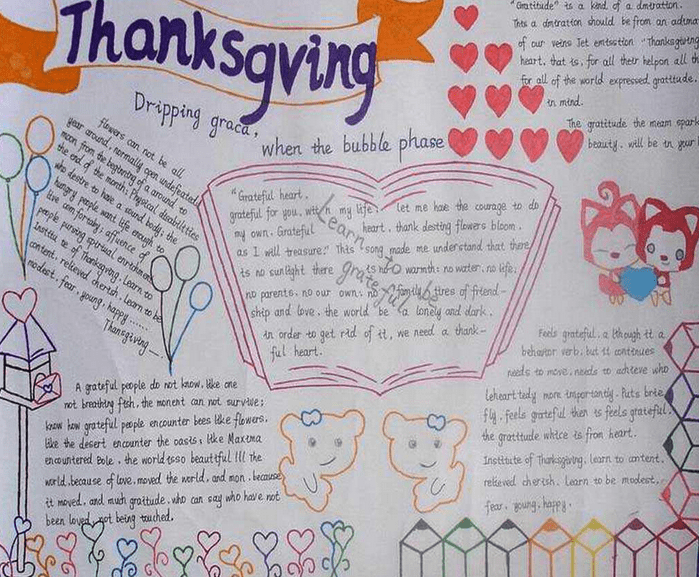 Thanksgving
Dripping graca,
when the bubble phase
"Gratitude" is a kind of a dmtration.
This a dmtration should be from an
of our veins Jet emtsstion "Thanksgiving
heart, that is, for all their helpon all th
for all of the world expressed gratitude,
in mind.
The gratitude the meam spark
beauty. will be in year
flowers can not be all
year around, normally open undefeated,
moon from the beginning of a around to
the end of the month; Physical disabilities
who destre to have a sound body; the
hungry people want life enough to
live comfortably; affluence of
people pursing spiritual enrichment
Institu te of Thanksgiving, Learn to
content, relieved cherish, learn to be
modest, fear, young, happy......
Thanksgiving
"Grateful heart.
grateful for you, with n my life; let me hae the courage to do
my own. Grateful heart. thank desting flowers bloom.
as I will treasure." This song made me understand that there
is no sunlight there is no warmth; no water, no life;
no parents, no our own; no family, tires of friend-
ship and love, the world be a lonely and dark.
in order to get rid of it, we need a thank-
ful heart.
Learn to be grateful
A grateful people do not know, like one
not breathing fish, the monent can not survive;
know how grateful people encounter bees like flowers,
like the desert encounter the oasts, like Maxima
encountered Bole, the world isso beautiful !!! the
world, because of love, moved the world, and mon, because
it moved, and much graitude, who can say who have not
been loved, not being touched,
Feels grateful, a lthough it a
behavior verb, but it continues
needs to move, needs to achteve who
Leheart tedly more importantly. Puts brie
fly, feels grateful then is feels grateful,
the gratitude whtce is from heart.
Institute of Thanksgiving, learn to content,
relieved cherish. Learn to be modest,
fear, young, happy.